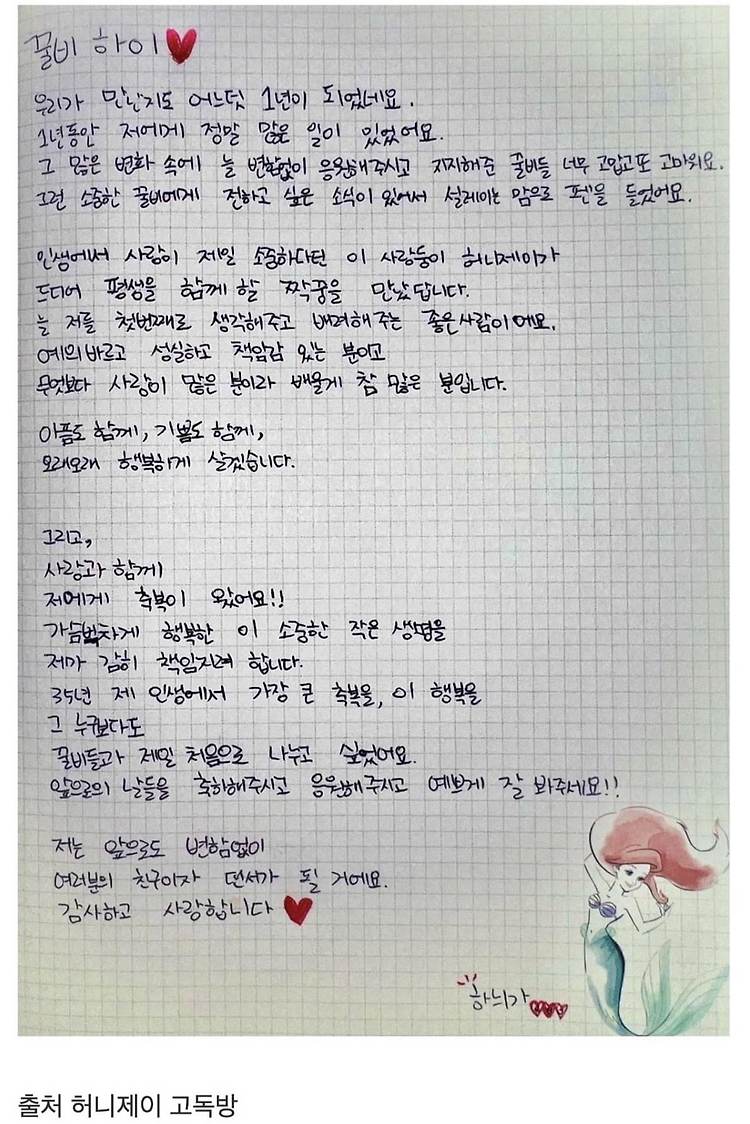 꿀비 하이
우리가 만난지도 어느덧 1년이 되었네요.
1년동안 저에게 정말 많은 일이 있었어요.
그 많은 변화 속에 늘 변함없이 응원해주시고 지지해준 꿀비들 너무 고맙고또 고마워요.
그런 소중한 꿀비에게 전하고 싶은 소식이 있어서 설레이는 맘으로 펜을 들었어요.
인생에서 사랑이 제일 소중하다던 이 사랑둥이 허니제이가
드디어 평생을 함께 할 짝꿍을 만났답니다.
늘 저를 첫번째로 생각해주고 배려해주는 좋은사람이에요.
예의바르고 성실하고 책임감 있는 분이고
무엇보다 사랑이 많은 분이라 배울게 참 많은 분입니다.
아픔도 함께, 기쁨도 함께,
오래오래 행복하게 살겠습니다.
그리고,
사랑과 함께
저에게 축복이 왔어요!!
가슴벅차게 행복한 이 소중한 작은 생명을
제가 감히 책임지려 합니다.
35년 제 인생에서 가장 큰 축복을, 이 행복을
그 누구보다도
꿀비들과 제일 처음으로 나누고 싶었어요.
앞으로의 날들을 축하해주시고 응원해주시고 예쁘게 잘 봐주세요!!
저는 앞으로도 변함없이
여러분의 친구이자 댄서가 될 거에요.
감사하고 사랑합니다
하늬가
출처 허니제이 고독방